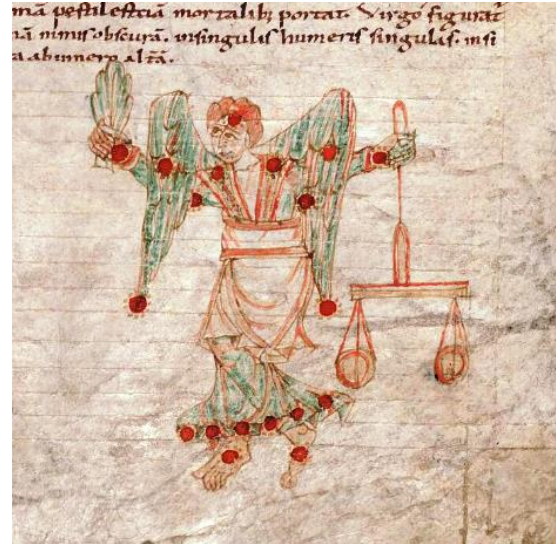 mā pestilētiā mortalibꝫ portat. Virgo figurat
nā nimis obscurā. insingulis humeris singulas. insi
a abumero altā.